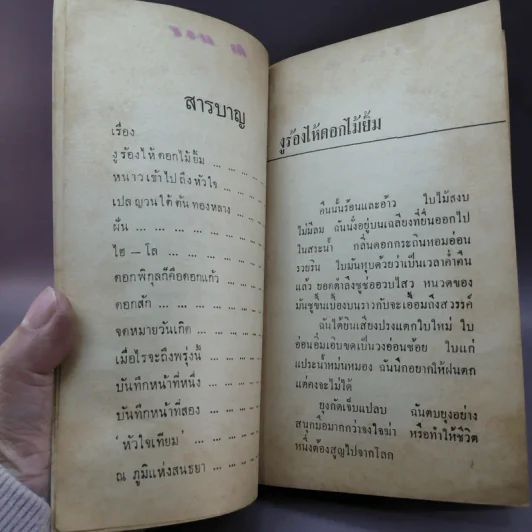 สารบาญ
เรื่อง
งูร้องไห้ดอกไม้ยิ้ม ... ... ... ...
หนาวเข้าไปถึงหัวใจ ... ... ...
เปลญวนใต้ต้นทองหลาง ...
ฝัน ... ... ... ... ... ... ...
ไฮ – โล ... ... ... ... ... ...
ดอกพิกุลก็คือดอกแก้ว ... ...
ดอกสัก ... ... ... ... ... ...
จดหมายวันเกิด ... ... ... ...
เมื่อไรจะถึงพรุ่งนี้ ... ... ...
บันทึกหน้าที่หนึ่ง ... ... ...
บันทึกหน้าที่สอง ... ... ...
'หัวใจเทียม' ... ... ... ...
ณ ภูมิแห่งสนธยา ... ... ...
งูร้องไห้ดอกไม้ยิ้ม
คืนนั้นร้อนและอ้าว ใบไม้สงบ
ไม่มีลม ฉันนั่งอยู่บนเฉลียงที่ยื่นออกไป
ในสระน้ำ กลิ่นดอกกระถินหอมอ่อน
รวยริน ใบมันหุบด้วยว่าเป็นเวลาค่ำคืน
แล้ว ยอดตำลึงชูช่ออวบไสว หนวดของ
มันชูขึ้นเบื้องบนราวกับจะเอื้อมถึงสวรรค์
ฉันได้ยินเสียงปรงแตกใบใหม่ ใบ
อ่อนอิ่มเอิบขดเป็นวงอ่อนช้อย ใบแก่
แประน้ำหม่นหมอง ฉันนึกอยากให้ฝนตก
แต่คงจะไม่ได้
ยุงกัดเจ็บแปลบ ฉันตบยุงอย่าง
สนุกมือมากกว่าจงใจฆ่า หรือทำให้ชีวิต
หนึ่งต้องสูญไปจากโลก